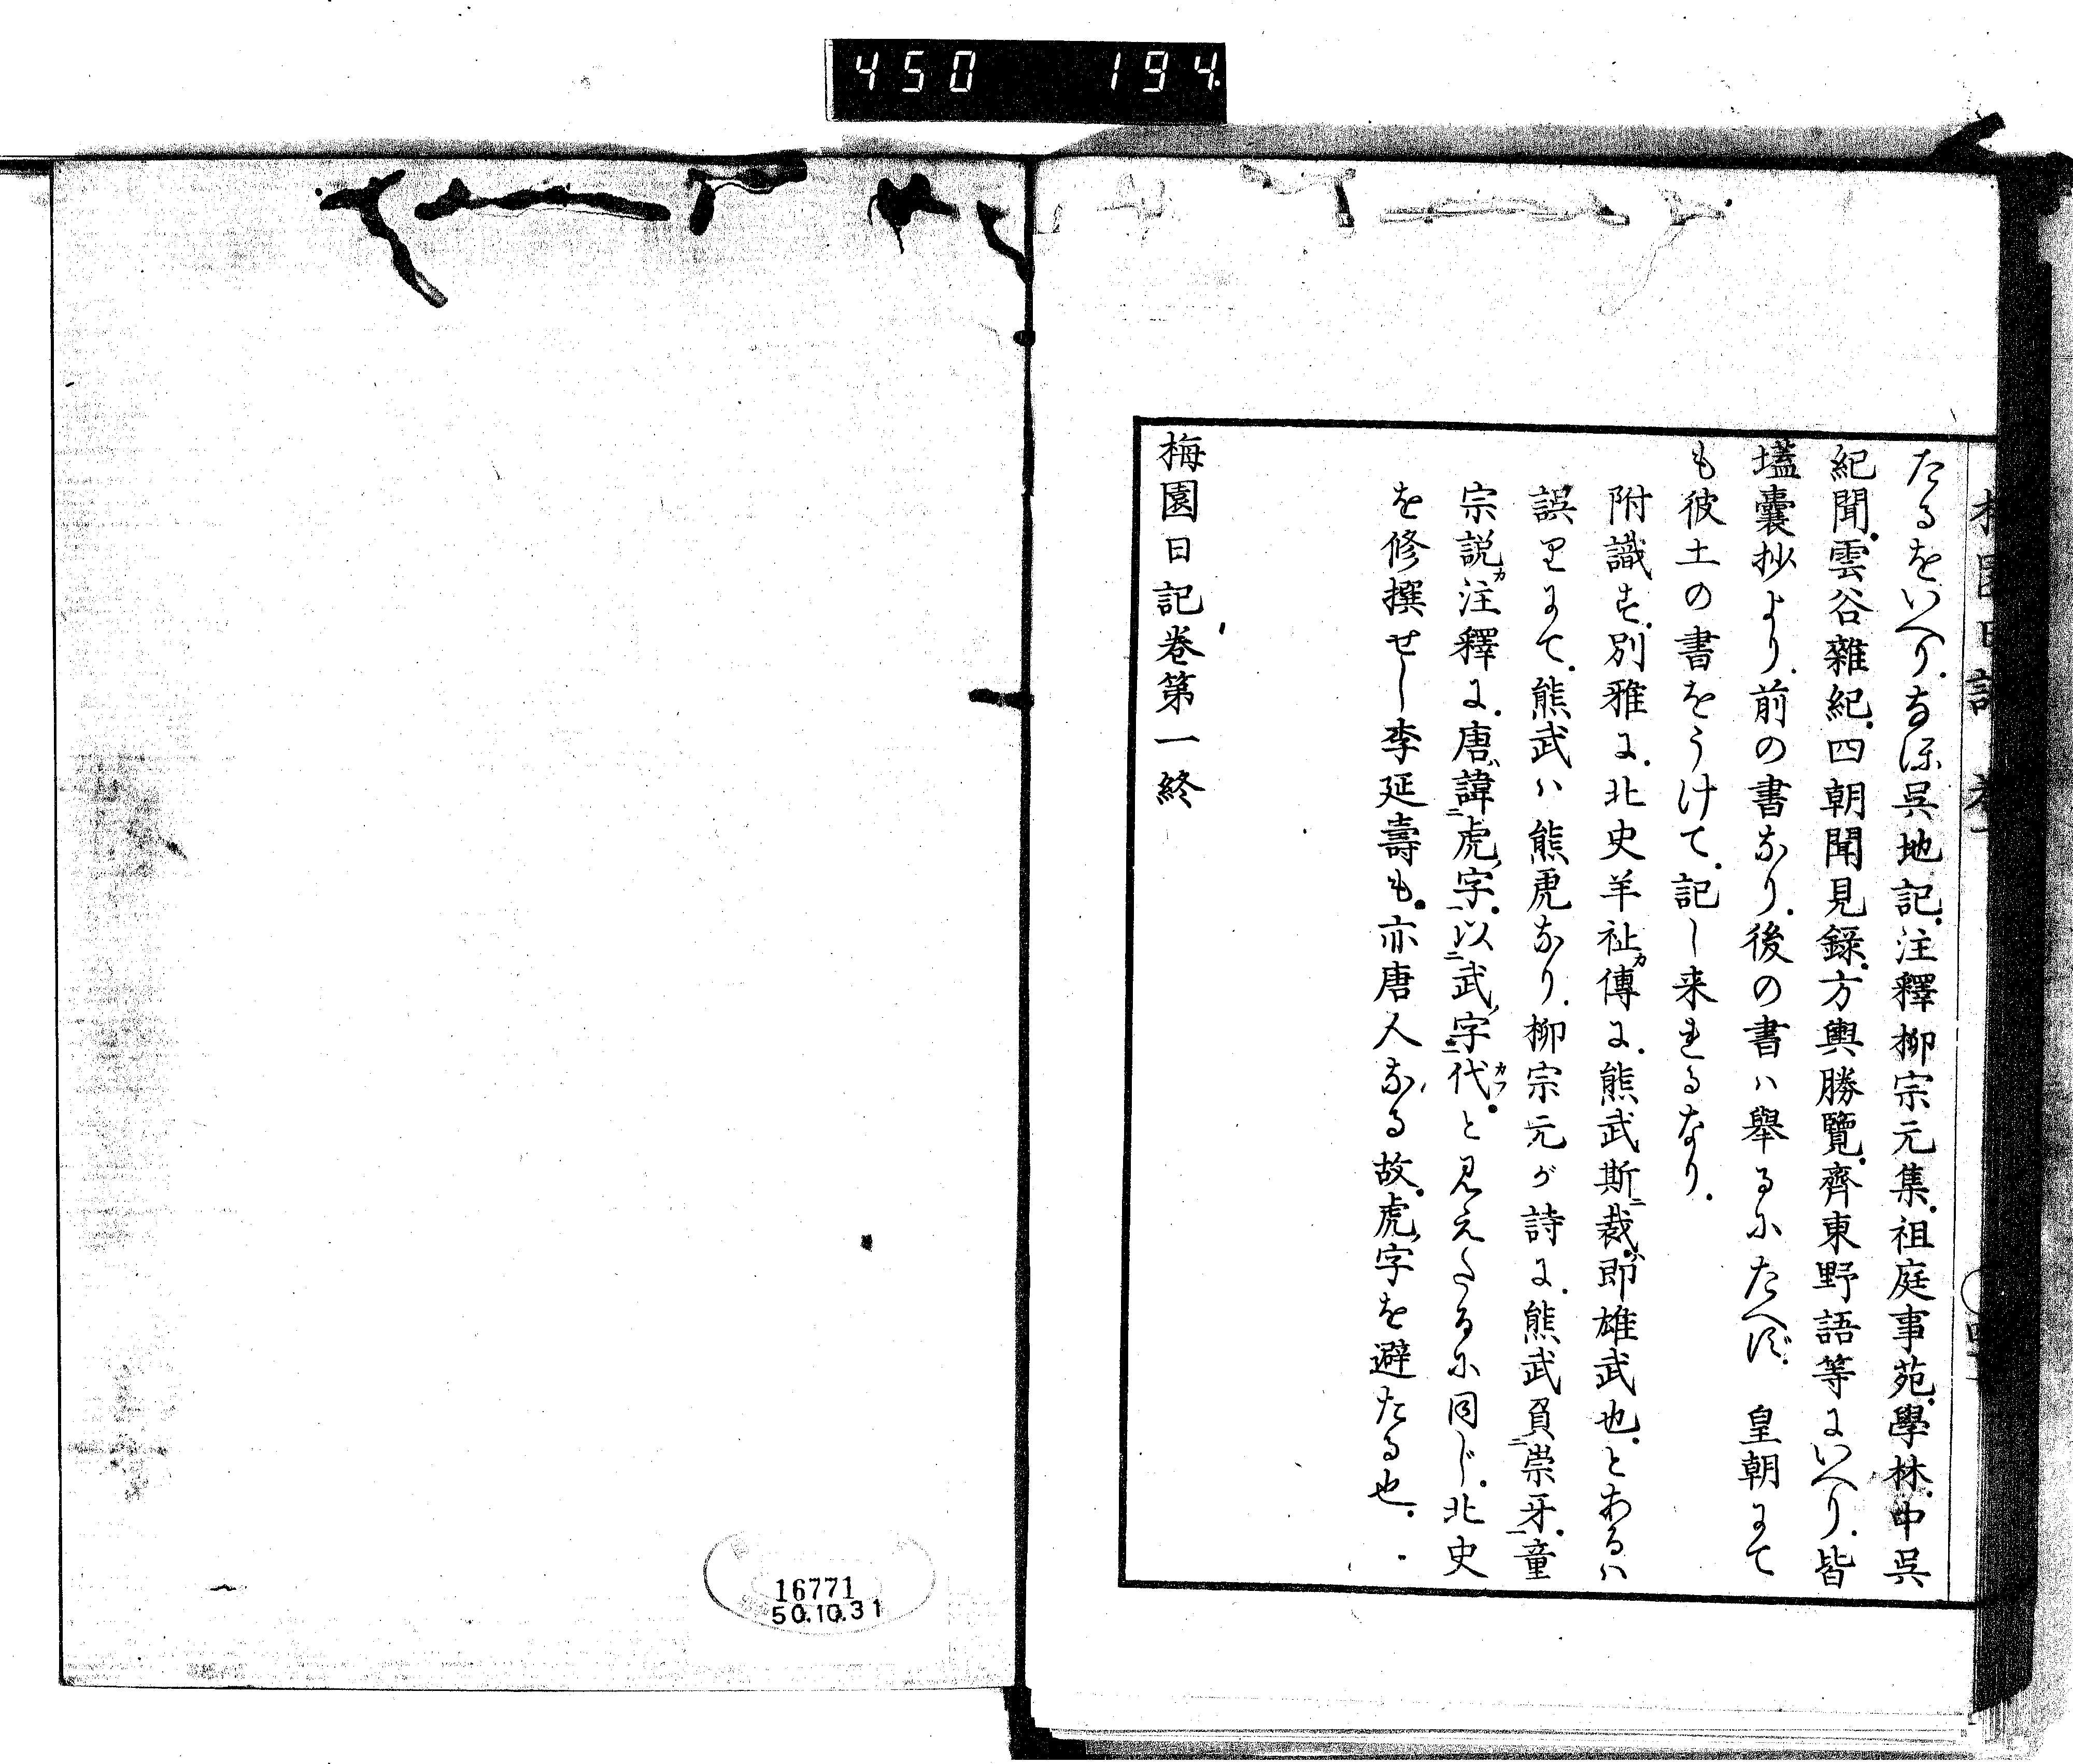 450 194
たるをいへり。なほ呉地記。注釋柳宗元集。祖庭事苑。學林。中呉
紀聞。雲谷雜紀。四朝聞見録。方輿勝覽。齊東野語等にいへり。皆
壒囊抄より。前の書なり。後の書ハ擧るにたへず。皇朝にて
も彼土の書をうけて。記し来れるなり。
附識す。別雅に。北史羊祉傳に。熊武斯裁。即雄武也。とあるハ
誤りにて。熊武ハ熊虎なり。柳宗元が詩に。熊武負崇牙。童
宗説注釋に。唐諱虎字。以武字代。と見えたるに同じ。北史
を修撰せし李延壽も。亦唐人なる故。虎字を避たる也。
梅園日記卷第一終
16771
50.10.31